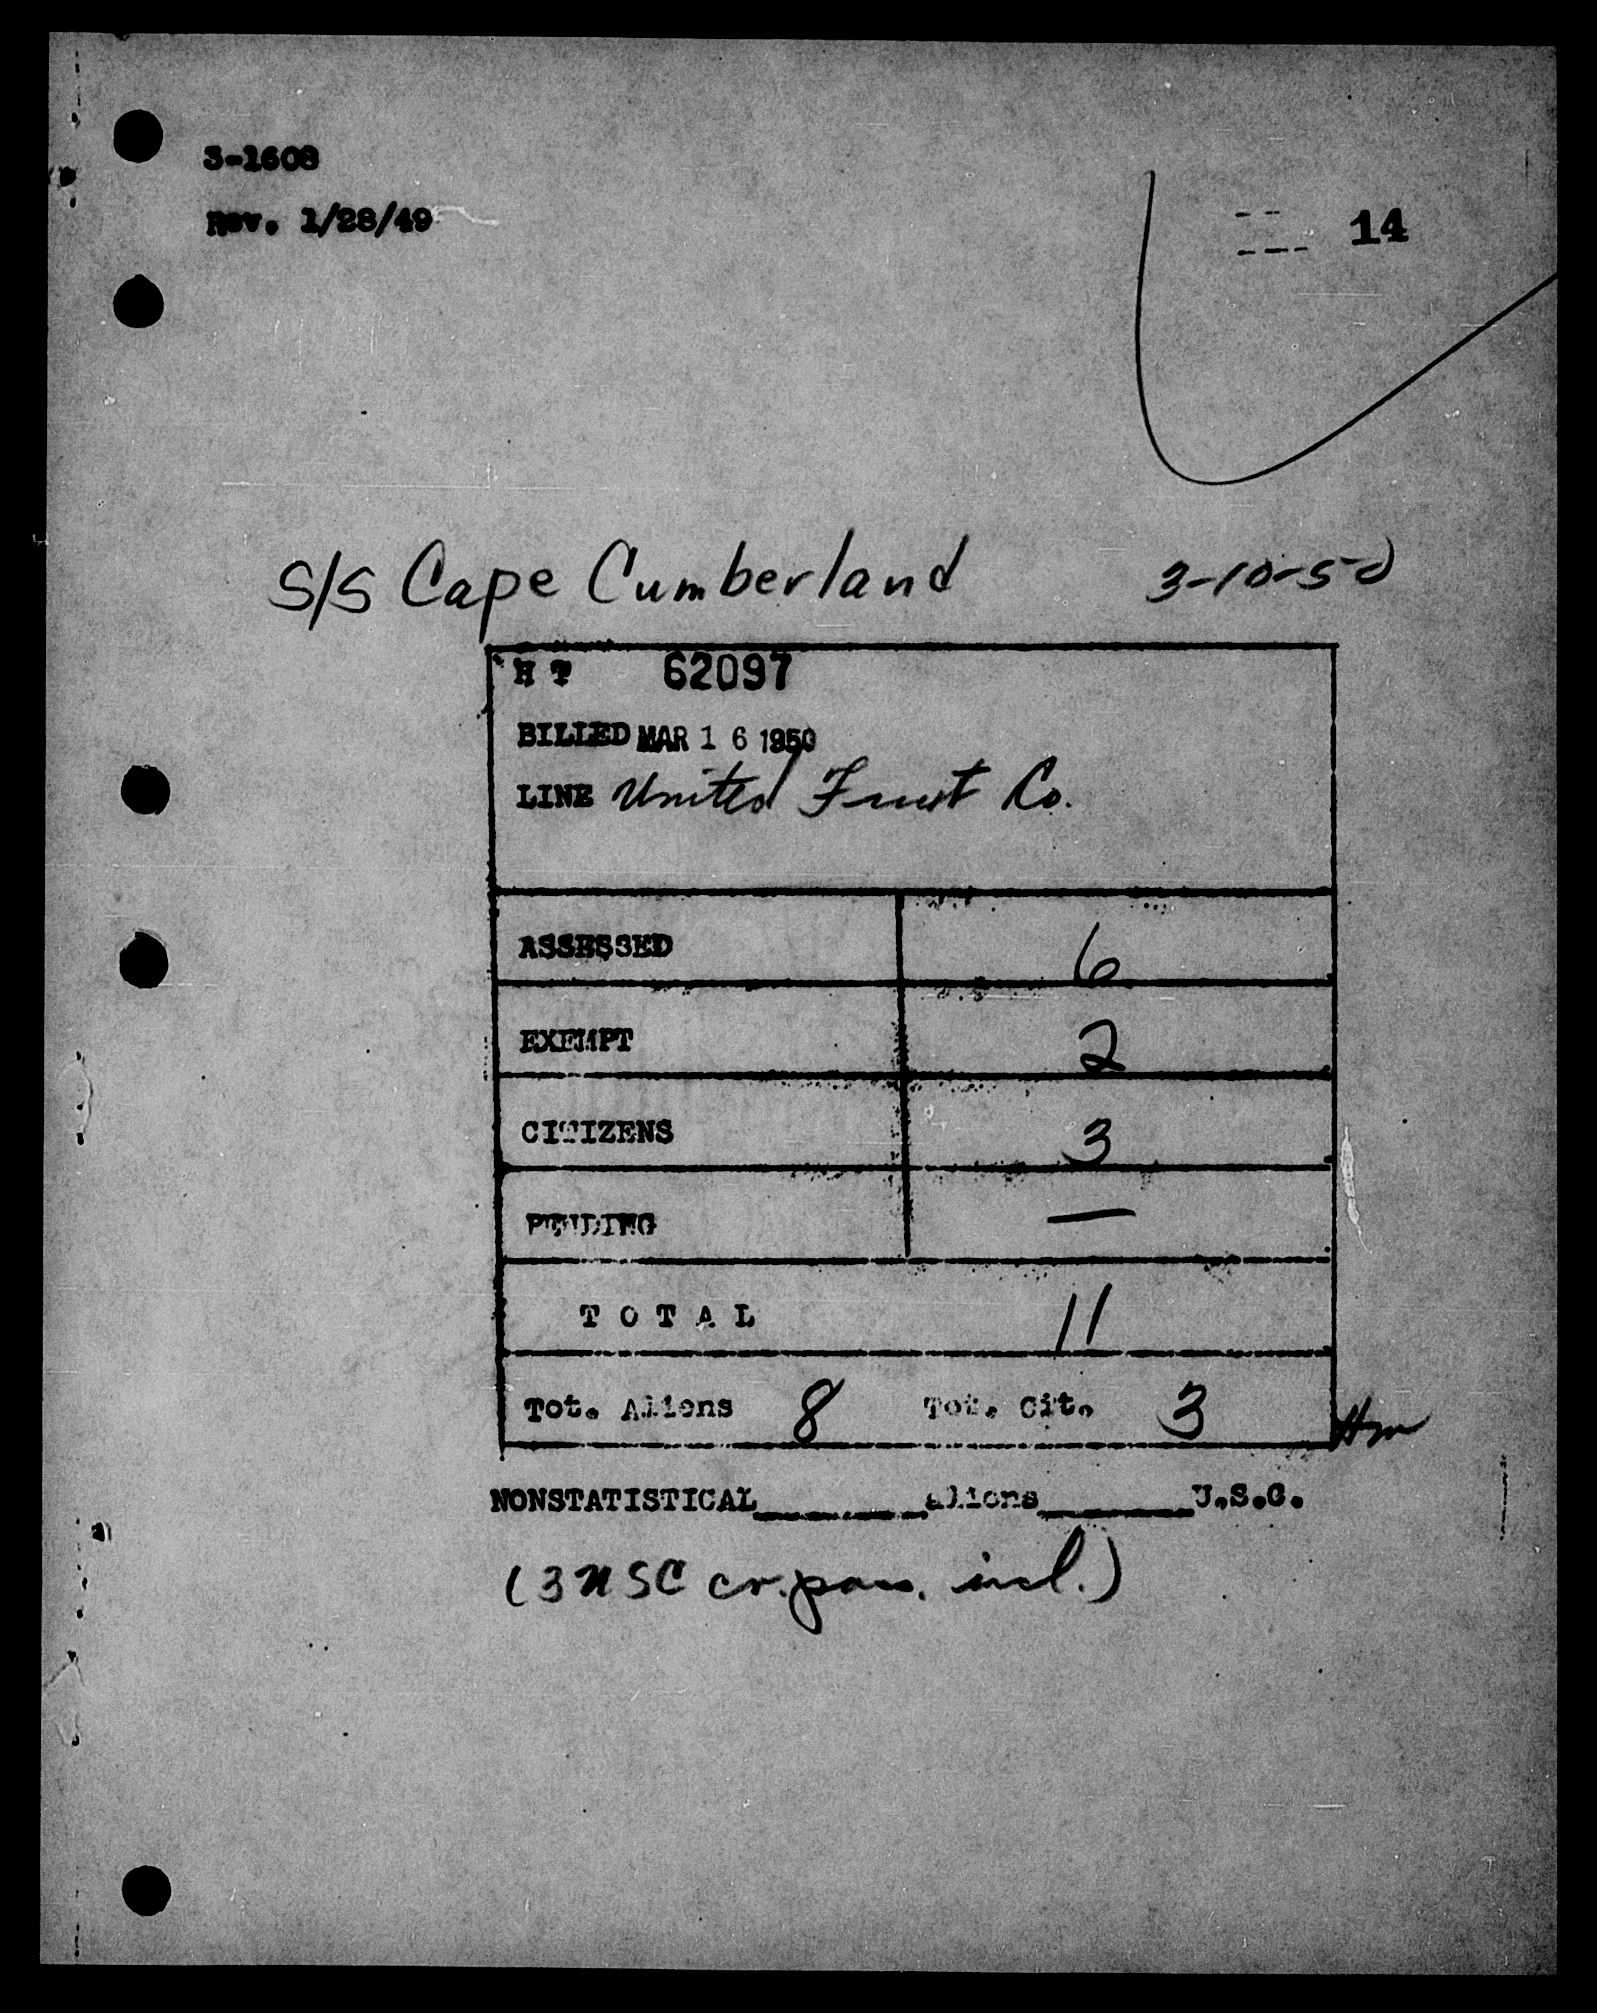 3-1608
Rev. 1/28/49
14
S/S Cape Cumberland 3-10-50
H T 62097
BILLED MAR 16 1950
LINE United Fruit Co.
ASSESSED 6
EXEMPT 2
CITIZENS 3
PENDING —
T O T A L 11
Tot. Aliens 8 Tot. Cit. 3
Hm
NONSTATISTICAL________aliens________U.S.C.
(3 NSC cr. pass. incl.)